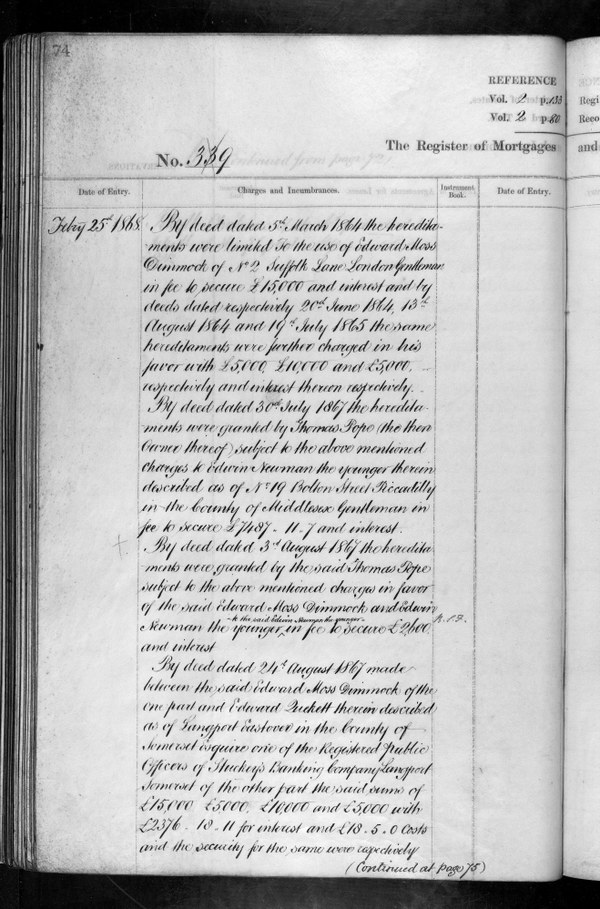 74
REFERENCE
Vol. 2 p. 133
Vol. 2 p. 80
Regi
Reco
The Register of Mortgages and
No. 339
(continued from page 72)
Date of Entry. Charges and Incumbrances. Instrument Book. Date of Entry.
Feby 25th 1868. By deed dated 5th March 1864 the heredita-
ments were limited To the use of Edward Moss
Dimmock of No 2 Suffolk Lane London Gentleman
in fee to secure £15,000 and interest and by
deeds dated respectively 20th June 1864, 13th
August 1864 and 19th July 1865 the same
hereditaments were further charged in his
favor with £5,000, £10,000 and £5,000,
respectively and interest thereon respctively.
By deed dated 30th July 1867 the heredita-
ments were granted by Thomas Pope (the then
Owner thereof) subject to the above mentioned
charges to Edwin Newman the younger therein
described as of No 19 Bolton Street Piccadilly
in the County of Middlesex Gentleman in
fee to secure £7487 - 11 - 7 and interest.
By deed dated 3rd August 1867 the heredita-
ments were granted by the said Thomas Pope
subject to the above mentioned charges in favor
of the said Edward Moss Dimmock and Edwin
to the said Edwin Newman the younger
Newman the younger, in fee to secure £2,600
and interest
By deed dated 24th August 1867 made
between the said Edward Moss Dimmock of the
one part and Edward Quekett therein described
as of Langport Eastover in the County of
Somerset Esquire one of the Registered Public
Officers of Stuckey's Banking Company Langport
Somerset of the other part the said sums of
£15,000 £5,000, £10,000 and £5,000 with
£2376 - 18 - 11 for interest and £18 - 5 - 0 Costs
and the security for the same were respectively
(Continued at page 75)